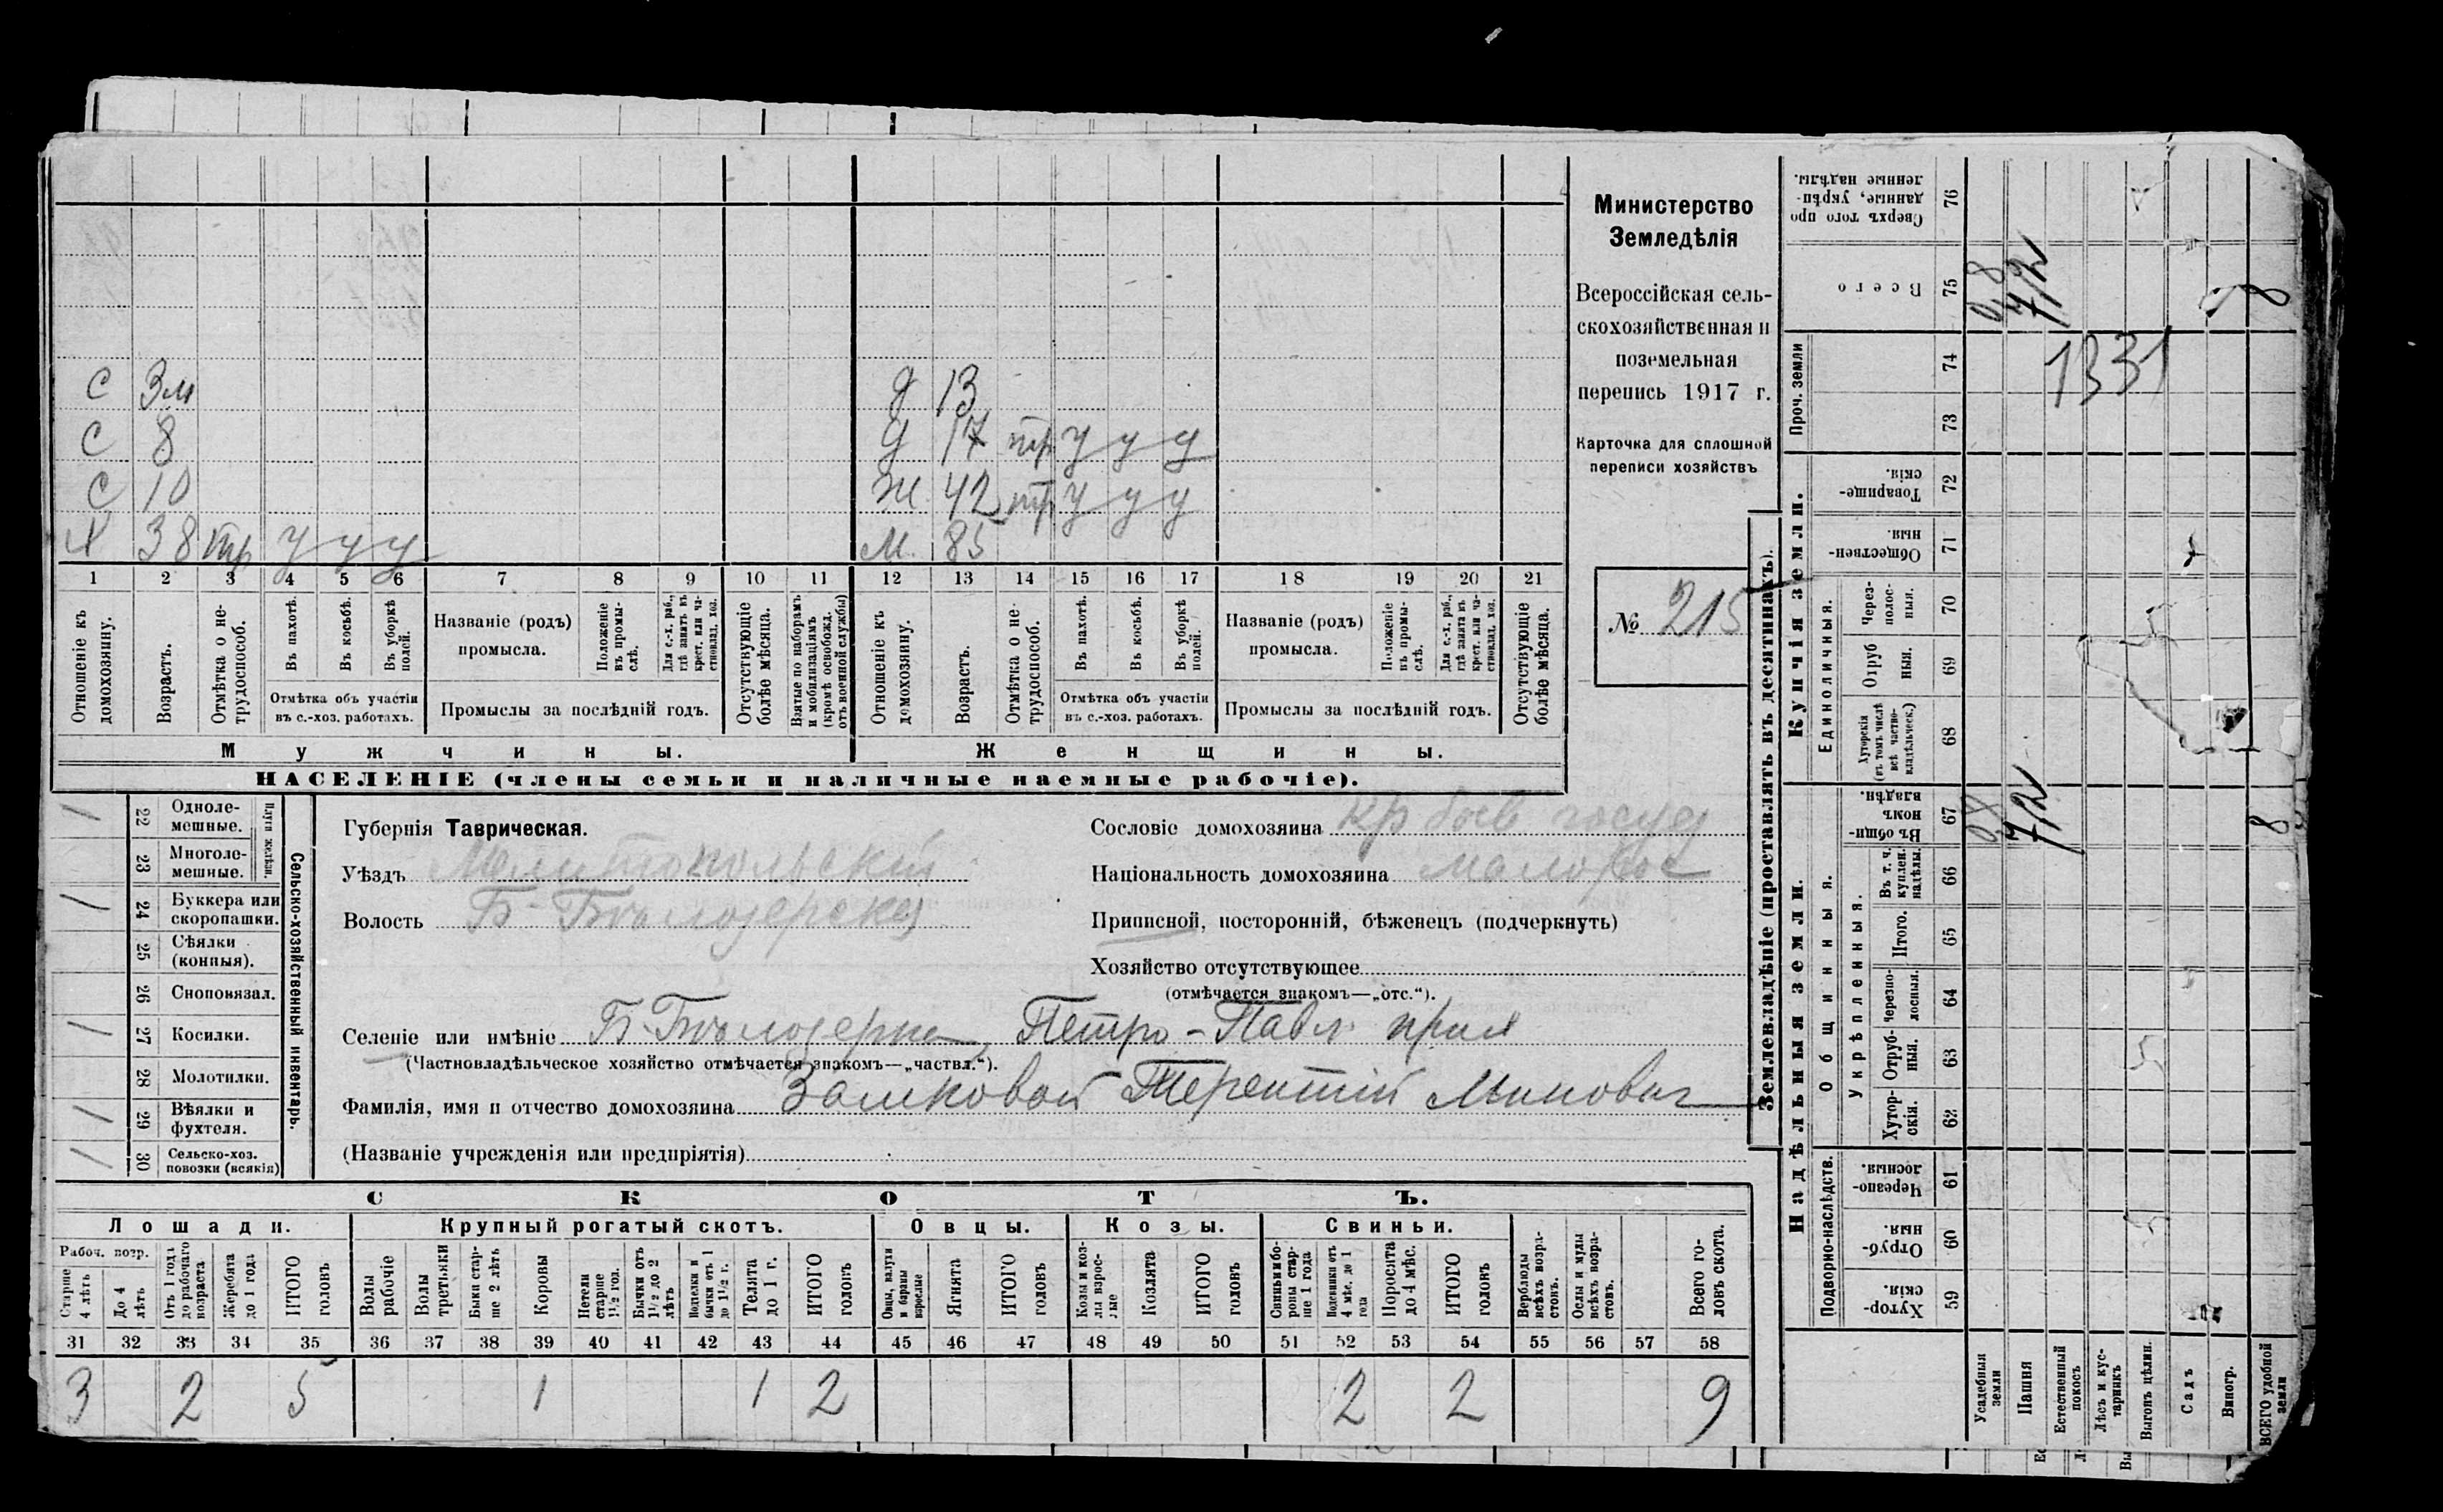 С 3м Д 13
С 8 Д 17 тр у у у
С 10 Ж 42 тр у у у
Х 38 тр у у у М. 85
1 2 3 4 5 6 7 8 9 10 11 12 13 14 15 16 17 18 19 20 21
Отношеніе къ домохозяину.
Возрастъ.
Отмѣтка о не-трудоспособ.
Въ пахотѣ.
Въ косьбѣ.
Въ уборкѣ полей.
Отмѣтка объ участіи
въ с.-хоз. работахъ.
Названіе (родъ)
промысла.
Положеніе въ промы-слѣ.
Для с.-х. раб., гдѣ занятъ въ крест. или ча-стновлад. хоз.
Промыслы за послѣдній годъ.
Отсутствующіе болѣе мѣсяца.
Взятые по наборамъ и мобилизаціямъ (кромѣ освобожд. отъ военной службы)
Отношеніе къ домохозяину.
Возрастъ.
Отмѣтка о не-трудоспособ.
Въ пахотѣ.
Въ косьбѣ.
Въ уборкѣ полей.
Отмѣтка объ участіи
въ с.-хоз. работахъ.
Названіе (родъ)
промысла.
Положеніе въ промы-слѣ.
Для с.-х. раб., гдѣ занята въ крест. или ча-стновлад. хоз.
Промыслы за послѣдній годъ.
Отсутствующіе болѣе мѣсяца.
Мужчины. Женщины.
НАСЕЛЕНІЕ (члены семьи и наличные наемные рабочіе).
Министерство
Земледѣлія
Всероссійская сель-
скохозяйственная и
поземельная
перепись 1917 г.
Карточка для сплошной
переписи хозяйствъ
№ 215
/ 22 Одноле-мешные.
23 Многоле-мешные.
Плуги желѣзн.
/ 24 Буккера или скоропашки.
25 Сѣялки (конныя).
26 Сноповязал.
/ 27 Косилки.
28 Молотилки.
/ 29 Вѣялки и фухтеля.
/ 30 Сельско-хоз. повозки (всякія)
Сельско-хозяйственный инвентарь.
Губернія Таврическая.
Уѣздъ Мелитопольскій
Волость Б-Бѣлозерская
Сословіе домохозяина кр быв госуд
Національность домохозяина малорос
Приписной, посторонній, бѣженецъ (подчеркнуть)
Хозяйство отсутствующее
(отмѣчается знакомъ—„отс.“).
Селеніе или имѣніе Б.Бѣлозерка, Петро-Павл. прих
(Частновладѣльческое хозяйство отмѣчается знакомъ—„частвл.“).
Фамилія, имя и отчество домохозяина Замковой Терентій Минович
(Названіе учрежденія или предпріятія)
СКОТЪ.
Лошади. Крупный рогатый скотъ. Овцы. Козы. Свиньи.
Рабоч. возр.
Старше 4 лѣтъ
До 4 лѣтъ
Отъ 1 года до рабочаго возраста
Жеребята до 1 года
ИТОГО головъ
Волы рабочіе
Волы третьяки
Быки стар-ше 2 лѣтъ
Коровы
Нетели старше 1½ год.
Бычки отъ 1½ до 2 лѣтъ
Телки и бычки отъ 1 до 1½ г.
Телята до 1 г.
ИТОГО головъ
Овцы, валухи и бараны взрослые
Ягнята
ИТОГО головъ
Козы и коз-лы взрос-лые
Козлята
ИТОГО головъ
Свиньи и бо-ровы стар-ше 1 года
Подсвинки отъ 4 мѣс. до 1 года
Поросята до 4 мѣс.
ИТОГО головъ
Верблюды всѣхъ возра-стовъ.
Ослы и мулы всѣхъ возра-стовъ.
Всего го-ловъ скота.
31 32 33 34 35 36 37 38 39 40 41 42 43 44 45 46 47 48 49 50 51 52 53 54 55 56 57 58
3 2 5 1 1 2 2 2 9
Землевладѣніе (проставлять въ десятинахъ).
Надѣльныя земли. Купчія земли.
Подворно-наслѣдств.
Общинныя.
Укрѣпленныя.
Единоличныя.
Проч. земли
59 Хутор-скія.
60 Отруб-ныя.
61 Черезпо-лосныя.
62 Хутор-скія.
63 Отруб-ныя.
64 Черезпо-лосныя.
65 Итого.
66 Въ т. ч. куплен. надѣлы.
67 Въ общи-номъ владѣн.
68 Хуторскія (въ томъ числѣ всѣ частно-владѣльческ.)
69 Отруб ныя.
70 Через-полос-ныя.
71 Обществен-ныя.
72 Товарище-скія.
73
74
75 Всего
76 Сверхъ того про данные, укрѣп-ленные надѣлы.
Усадебныя земли
Пашня
Естественный покосъ
Лѣсъ и кус-тарникъ
Выгонъ цѣлин.
Садъ
Виногр.
ВСЕГО удобной земли
0,8 7,2 8
0,8 7,2 8
1331